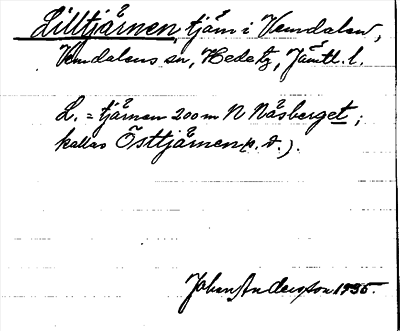 Lilltjärnen, tjärn i Vemdalen,
Vemdalens sn, Hede tg, Jämtl. l.
L. = tjärnen 200 m N Nåsberget;
kallas Östtjärnen (s. d.).
Johan Andersson 1935.